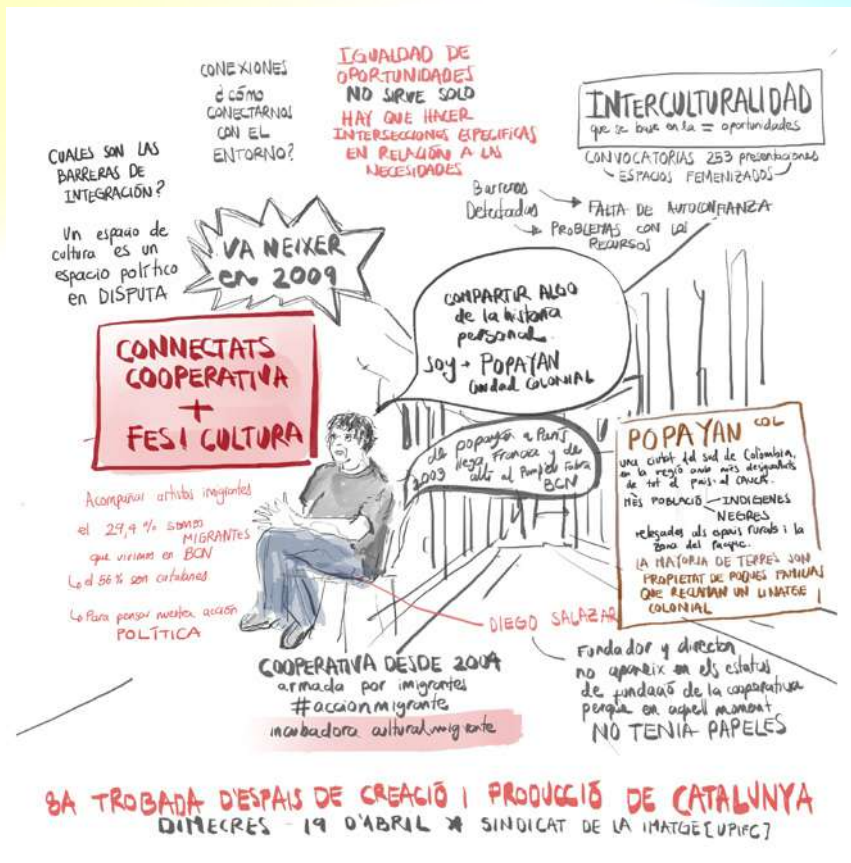 CONEXIONES
¿cómo
CONECTARNOS
CON EL
ENTORNO?
IGUALDAD DE
OPORTUNIDADES
NO SIRVE SOLO
HAY QUE HACER
INTERSECCIONES ESPECIFICAS
EN RELACIÓN A LAS
NECESIDADES
INTERCULTURALIDAD
que se base en la = oportunidades
CONVOCATORIAS 253 presentaciones
ESPACIOS FEMENIZADOS
Barreras
Detectadas
FALTA DE AUTOCONFIANZA
PROBLEMAS CON LOS
RECURSOS
CUALES SON LAS
BARRERAS DE
INTEGRACIÓN?
Un espacio de
cultura es un
espacio político
en DISPUTA
VA NEIXER
en 2009
COMPARTIR ALGO
de la historia
personal.
soy → POPAYAN
Ciudad COLONIAL
CONNECTATS
COOPERATIVA
+
FES! CULTURA
de popayán a París
llega Francia y de
2003 allí al Pompeu Fabra
BCN
POPAYAN COL
una ciutat del sud de Colombia,
en la regió amb més desigualtats
de tot el país: al CAUCA.
MÉS POBLACIÓ INDIGENES
NEGRES
relegades als espais rurals i la
zona del Pacífic.
LA MAYORIA DE TERRES SON
PROPIETAT DE POQUES FAMILIAS
QUE RECLAMAN UN LINATGE
COLONIAL
Acompañar artistas imigrantes
el 29,4 % somos
MIGRANTES
que vivimos en BCN
el 56 % son catalanes
Para pensar nuestra acción
POLÍTICA
DIEGO SALAZAR
Fundador y director
no apareix en els estatus
de fundació de la cooperativa
perque en aquell moment
NO TENIA PAPELES
COOPERATIVA DESDE 2009
armada por imigrantes
#accionmigrante
incubadora cultural migrante
8A TROBADA D'ESPAIS DE CREACIÓ I PRODUCCIÓ DE CATALUNYA
DIMECRES - 19 D'ABRIL * SINDICAT DE LA IMATGE [UPIFC]